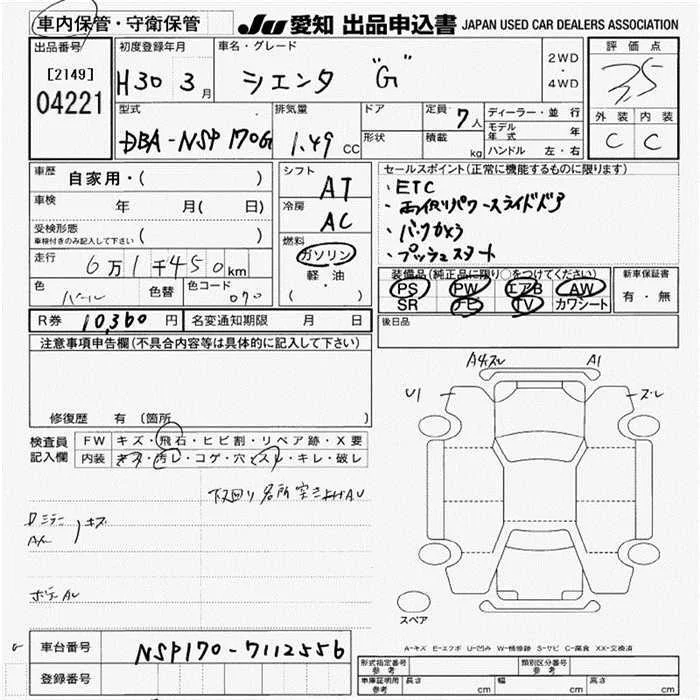 車内保管・守衛保管
JU 愛知 出品申込書 JAPAN USED CAR DEALERS ASSOCIATION
出品番号
[2149]
04221
初度登録年月
H30 3月
車名・グレード
シエンタ "G"
2WD
・
4WD
評価点
3.5
外装 内装
C C
型式
DBA-NSP170G
排気量
1.49 CC
ドア
形状
定員 7人
積載 kg
ディーラー・並行
モデル年式 年
ハンドル 左・右
車歴 自家用・( )
車検 年 月( 日)
受検形態
車検付きのみ記入して下さい ( )
走行 6万1千450km
色 パール 色替 色コード 070
シフト AT
冷房 AC
燃料
ガソリン
軽油
( ・ )
セールスポイント(正常に機能するものに限ります)
・ETC
・両側パワースライドドア
・バックカメラ
・プッシュスタート
装備品(純正品に限り○をつけてください)
PS PW エアB AW
SR ナビ TV カワシート
新車保証書
有・無
R券 10,360円 名変通知期限 月 日
後日品
注意事項申告欄(不具合内容等は具体的に記入して下さい)
修復歴 有 (箇所 )
検査員記入欄
FW キズ・飛石・ヒビ割・リペア跡・X要
内装 キズ・汚レ・コゲ・穴・スレ・キレ・破レ
下廻り
キズ
A4スレ A1
U1 スレ
スペア
A-キズ E-エクボ U-凹み W-補修跡 S-サビ C-腐食 XX-交換済
車台番号 NSP170-7112556
登録番号
形式指定番号 参考
類別区分番号 参考
車庫証明用 参考 長さ cm 幅 cm 高さ cm